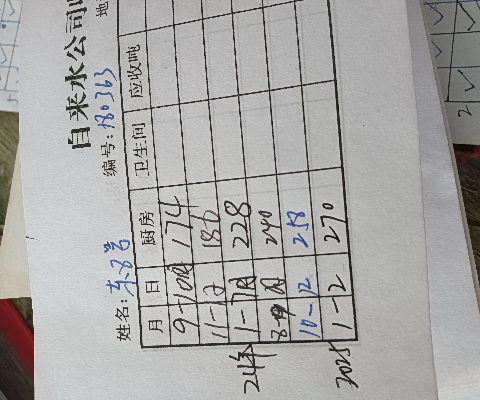 自来水公司
地
姓名: 编号: 180363
月 日 厨房 卫生间 应收吨
9-10月 174
11-12 186
24年 1-7月 228
8-9月 240
10-12 258
2025 1-12 270